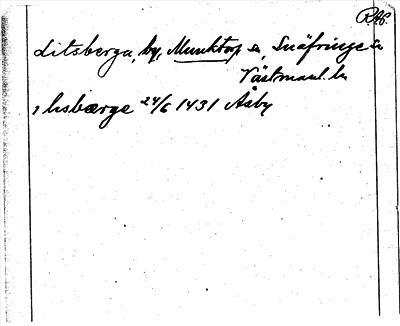 RAP.
Litsberga, by, Munktorp sn, Snäfringe hd
Västmanl. län
, lisbærge 24/6 1431 Åsby